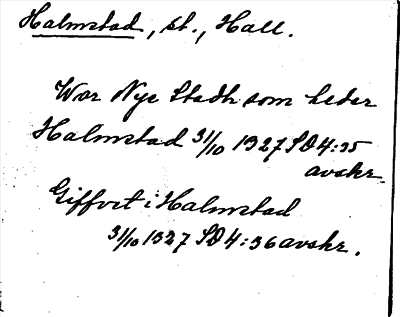 Halmstad, st., Hall.
War Nye Stadh som heder
Halmstad 31/10 1327 SD 4:35
avskr.
Giffvit i Halmstad
31/10 1327 SD 4:36 avskr.